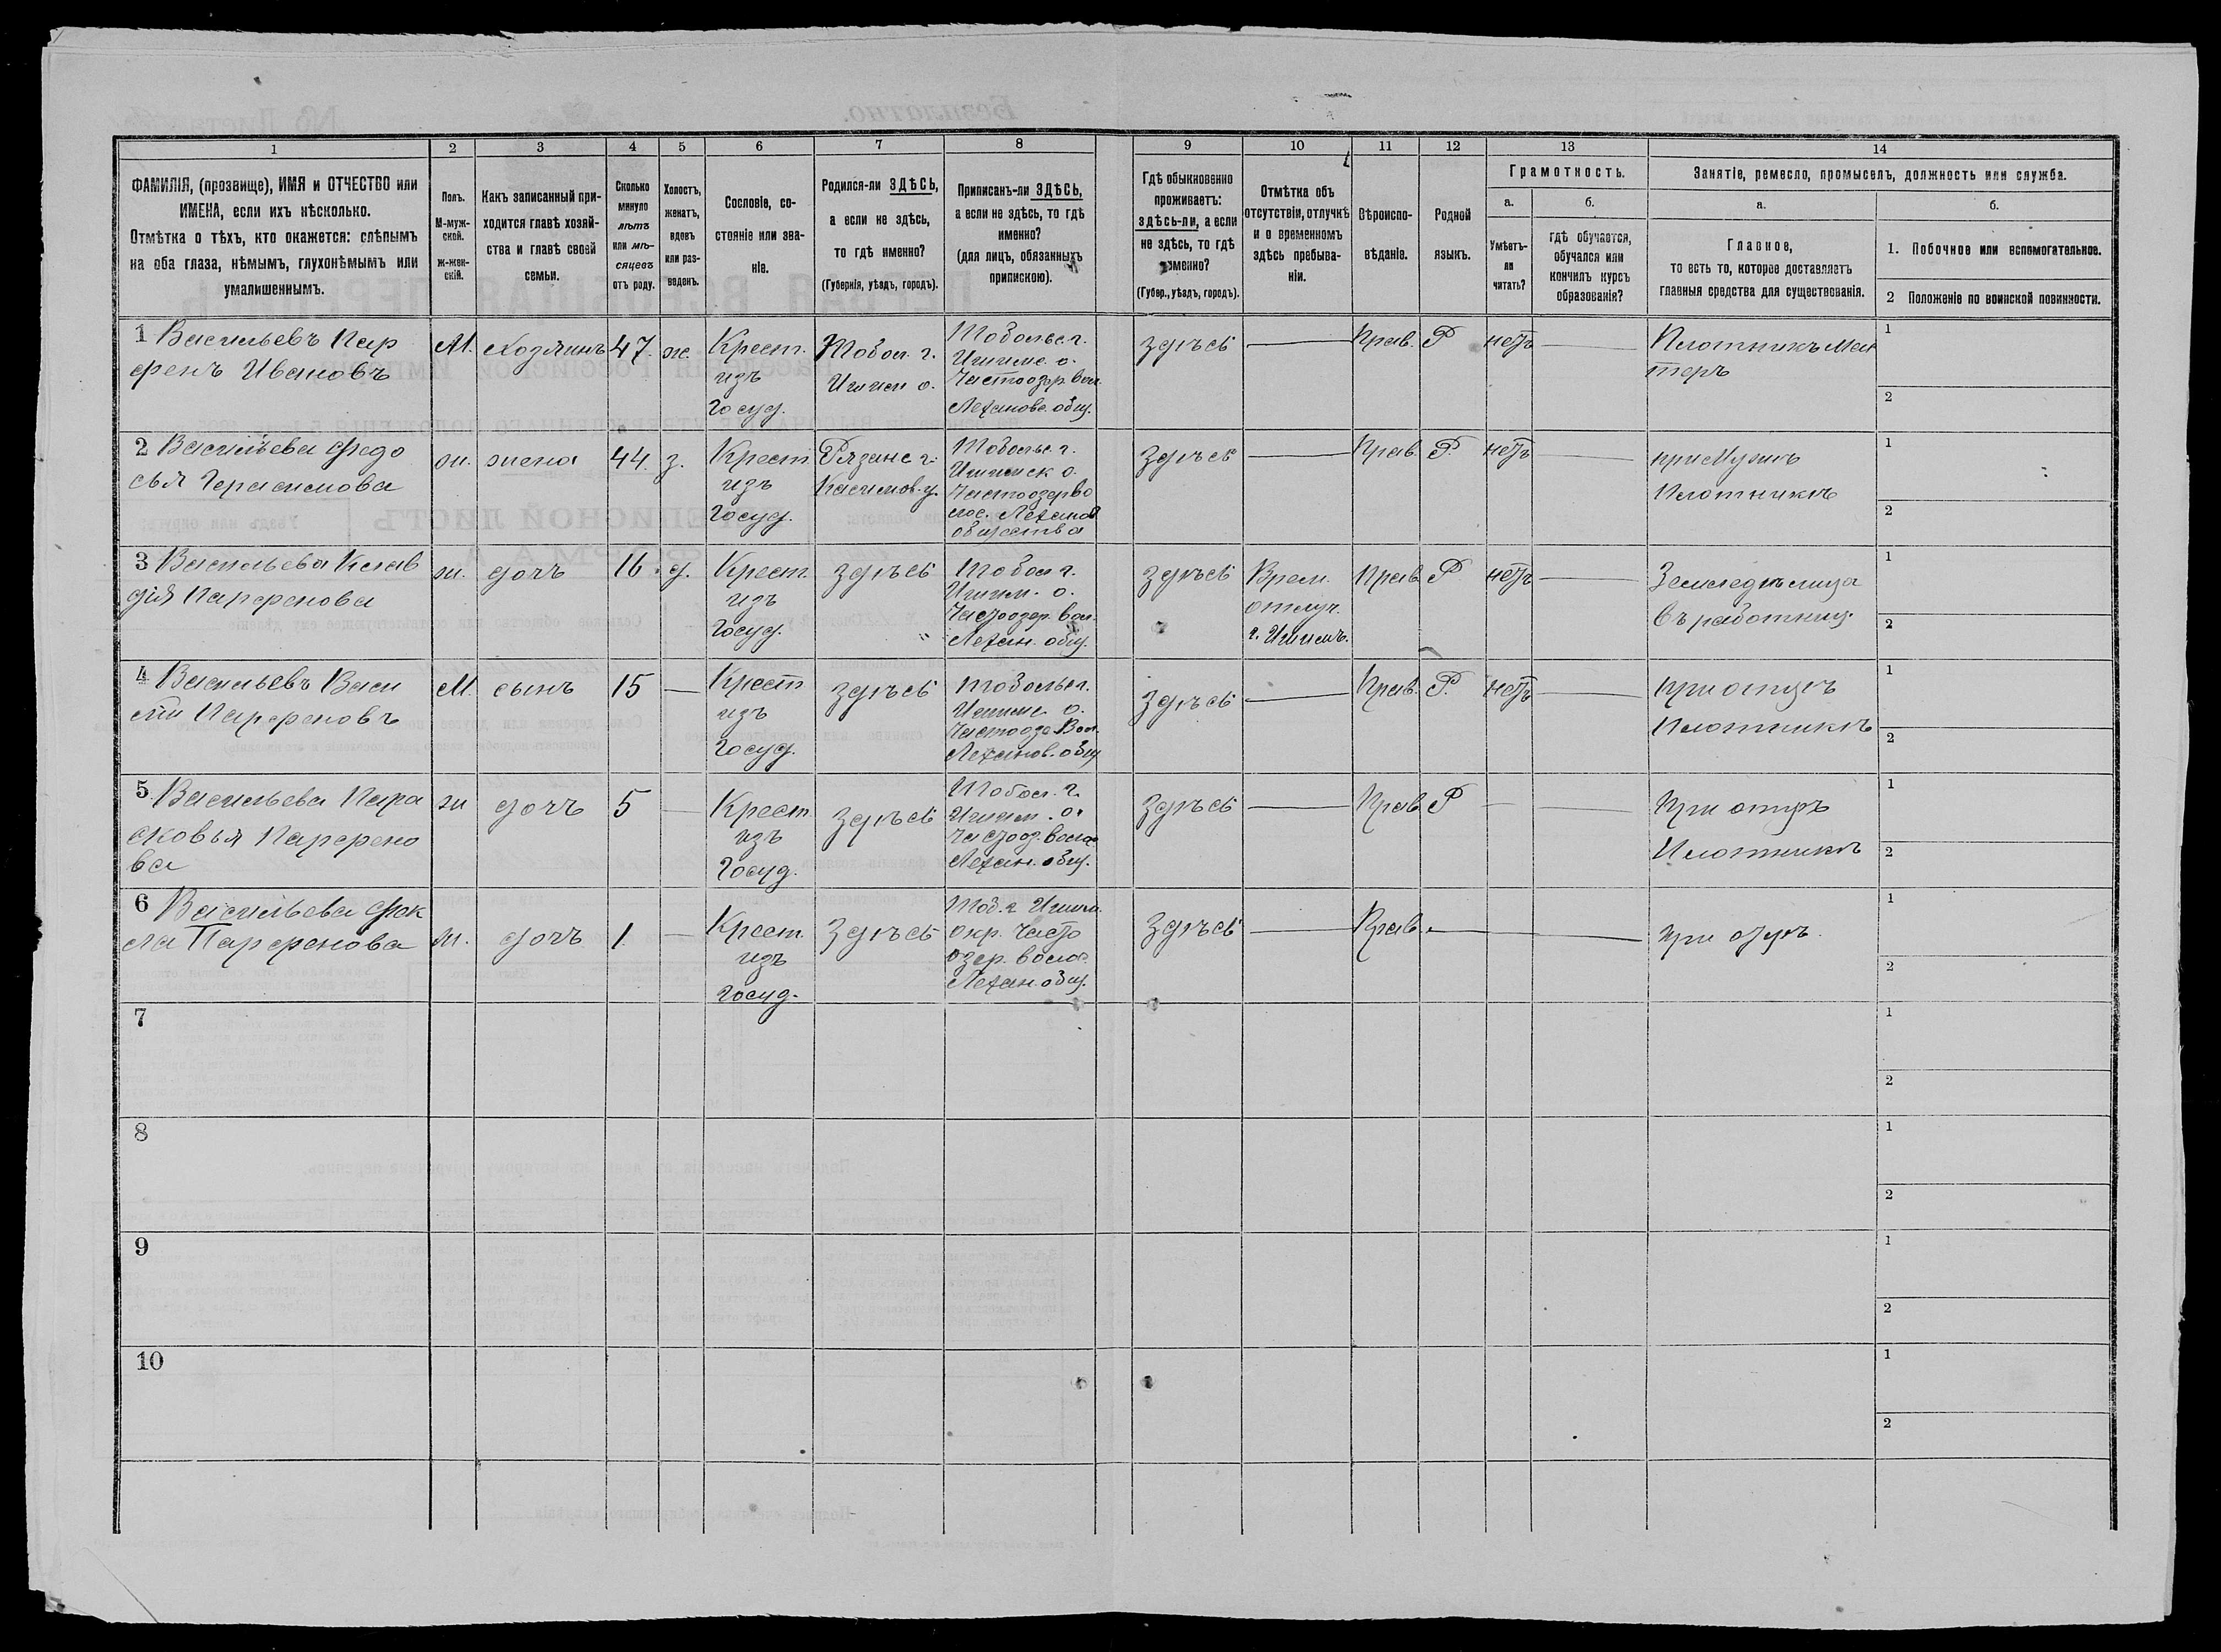 1
2
3
4
5
6
7
8
9
10
11
12
13
14
ФАМИЛІЯ, (прозвище), ИМЯ и ОТЧЕСТВО или
ИМЕНА, если ихъ нѣсколько.
Отмѣтка о тѣхъ, кто окажется: слѣпымъ
на оба глаза, нѣмымъ, глухонѣмымъ или
умалишеннымъ.
Полъ.
М-муж-
ской.
ж-жен-
скій.
Какъ записанный при-
ходится главѣ хозяй-
ства и главѣ своей
семьи.
Сколько
минуло
лѣтъ
или мѣ-
сяцевъ
отъ роду.
Холостъ,
женатъ,
вдовъ
или раз-
веденъ.
Сословіе, со-
стояніе или зва-
ніе.
Родился-ли ЗДѢСЬ,
а если не здѣсь,
то гдѣ именно?
(Губернія, уѣздъ, городъ).
Приписанъ-ли ЗДѢСЬ,
а если не здѣсь, то гдѣ
именно?
(для лицъ, обязанныхъ
припискою).
Гдѣ обыкновенно
проживаетъ:
здѣсь-ли, а если
не здѣсь, то гдѣ
именно?
(Губер., уѣздъ, городъ).
Отмѣтка объ
отсутствіи, отлучкѣ
и о временномъ
здѣсь пребыва-
ніи.
Вѣроиспо-
вѣданіе.
Родной
языкъ.
Грамотность.
а.
Умѣетъ-
ли
читать?
б.
гдѣ обучается,
обучался или
кончилъ курсъ
образованія?
Занятіе, ремесло, промыселъ, должность или служба.
а.
Главное,
то есть то, которое доставляетъ
главныя средства для существованія.
б.
1. Побочное или вспомогательное.
2 Положеніе по воинской повинности.
1 Васильевъ Пар
фенъ Ивановъ
М.
Хозяинъ
47.
ж.
Крест.
изъ
Госуд.
Тобол. г.
Ишим о.
Тобольс. г.
Ишимс. о.
Частоозр. вол.
Лехановс. общ.
здѣсь
Прав.
Р
нѣтъ
Плотникъ Мас
теръ
1
2
2 Васильева Федо
сья Герасимова
ж.
жена
44.
з.
Крест.
изъ
Госуд.
Рязанс г.
Касимов. у.
Тобольс. г.
Ишимск о.
Частоозер во
лос. Леханов
общества
здѣсь
Прав.
Р
нѣтъ
при Мужѣ
Плотникѣ
1
2
3 Васильева Клав
дія Парфенова
ж.
дочь
16.
д.
Крест.
изъ
Госуд.
здѣсь
Тобол г.
Ишим. о.
Частоозер. вол.
Лехан. общ.
здѣсь
Врем.
отлуч.
г. Ишимъ.
Прав
Р
нѣтъ
Земледѣлица
въ работниц.
1
2
4 Васильевъ Васи
лій Парфеновъ
М
сынъ
15
Крест
изъ
Госуд.
здѣсь
Тобольс г.
Ишимс. о.
Частооз. Вол.
Леханов. общ
здѣсь
Прав.
Р.
нѣтъ
при отцѣ
Плотникѣ
1
2
5 Васильева Пара
сковья Парфено
ва
ж
дочь
5
Крест.
изъ
Госуд.
здѣсь
Тобол. г.
Ишим. о.
Частооз. волос
Лехан. общ.
здѣсь
Прав
Р
При отцѣ
Плотникѣ
1
2
6 Васильева Фек
ла Парфенова
ж.
дочь
1.
Крест.
изъ
Госуд.
Здѣсь
Тоб. г Ишим.
окр. Часто
озер. волос.
Лехан. общ.
здѣсь
Прав.
при отцѣ.
1
2
7
1
2
8
1
2
9
1
2
10
1
2